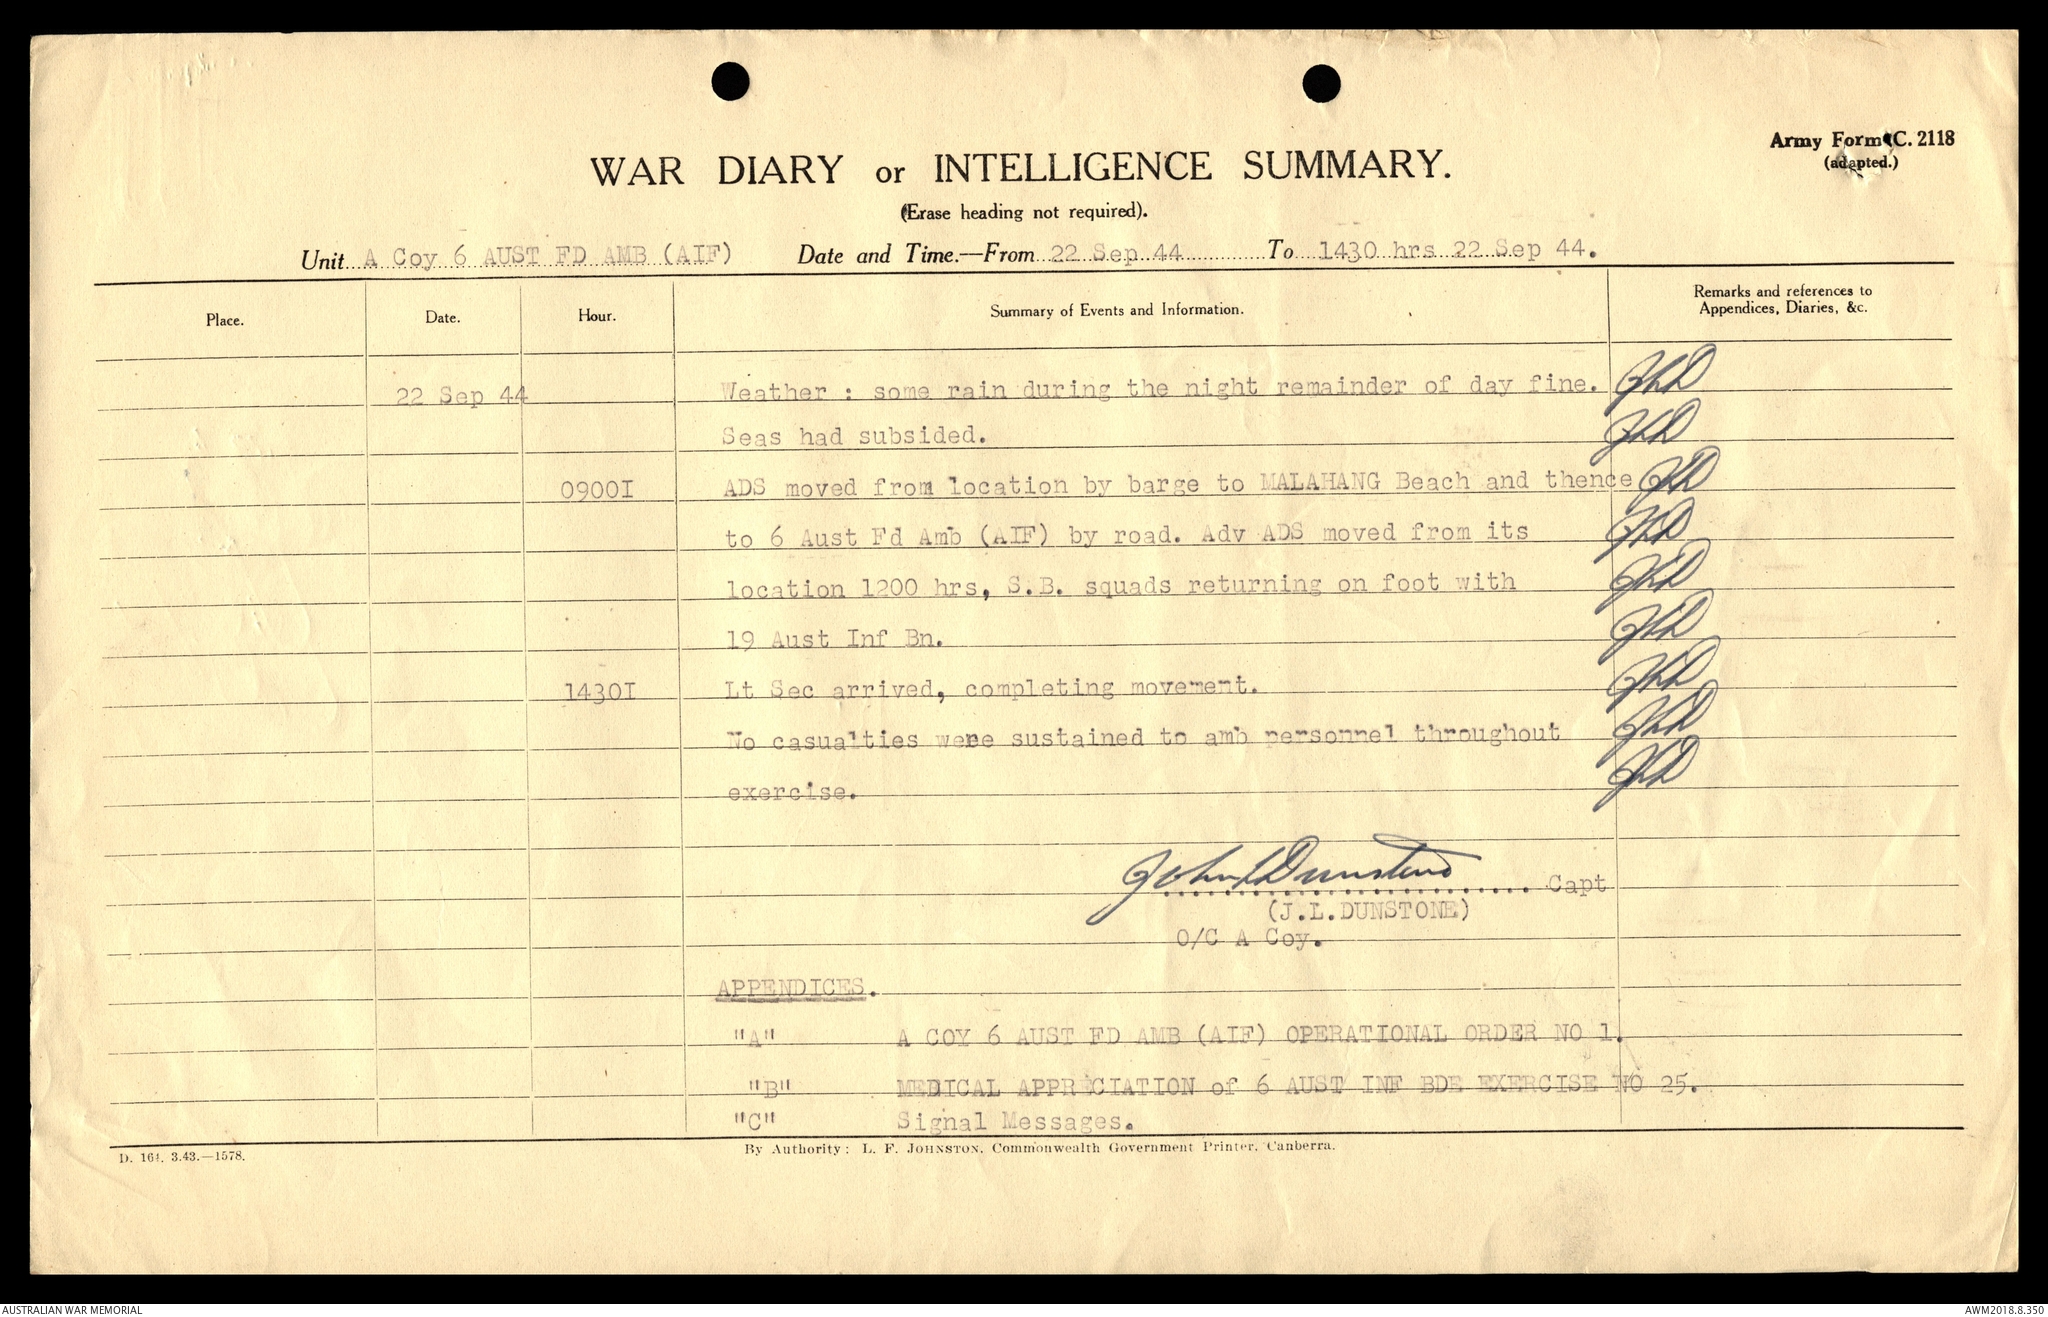 Army Form C. 2118
(adapted.)
WAR DIARY or INTELLIGENCE SUMMARY.
(Erase heading not required).
Unit A Coy 6 AUST FD AMB (AIF) Date and Time.—From 22 Sep 44 To 1430 hrs 22 Sep 44.
Place. Date. Hour. Summary of Events and Information. Remarks and references to
Appendices, Diaries, &c.
22 Sep 44 Weather : some rain during the night remainder of day fine. JLD
Seas had subsided. JLD
0900I ADS moved from location by barge to MALAHANG Beach and thence JLD
to 6 Aust Fd Amb (AIF) by road. Adv ADS moved from its JLD
location 1200 hrs, S.B. squads returning on foot with JLD
19 Aust Inf Bn. JLD
1430I Lt Sec arrived, completing movement. JLD
No casualties were sustained to amb personnel throughout JLD
exercise. JLD
John L Dunstone Capt
(J.L.DUNSTONE)
O/C A Coy.
APPENDICES.
"A" A COY 6 AUST FD AMB (AIF) OPERATIONAL ORDER NO 1.
"B" MEDICAL APPRECIATION of 6 AUST INF BDE EXERCISE NO 25.
"C" Signal Messages.
D. 164. 3.43.—1578. By Authority: L. F. JOHNSTON, Commonwealth Government Printer, Canberra.
AUSTRALIAN WAR MEMORIAL AWM2018.8.350